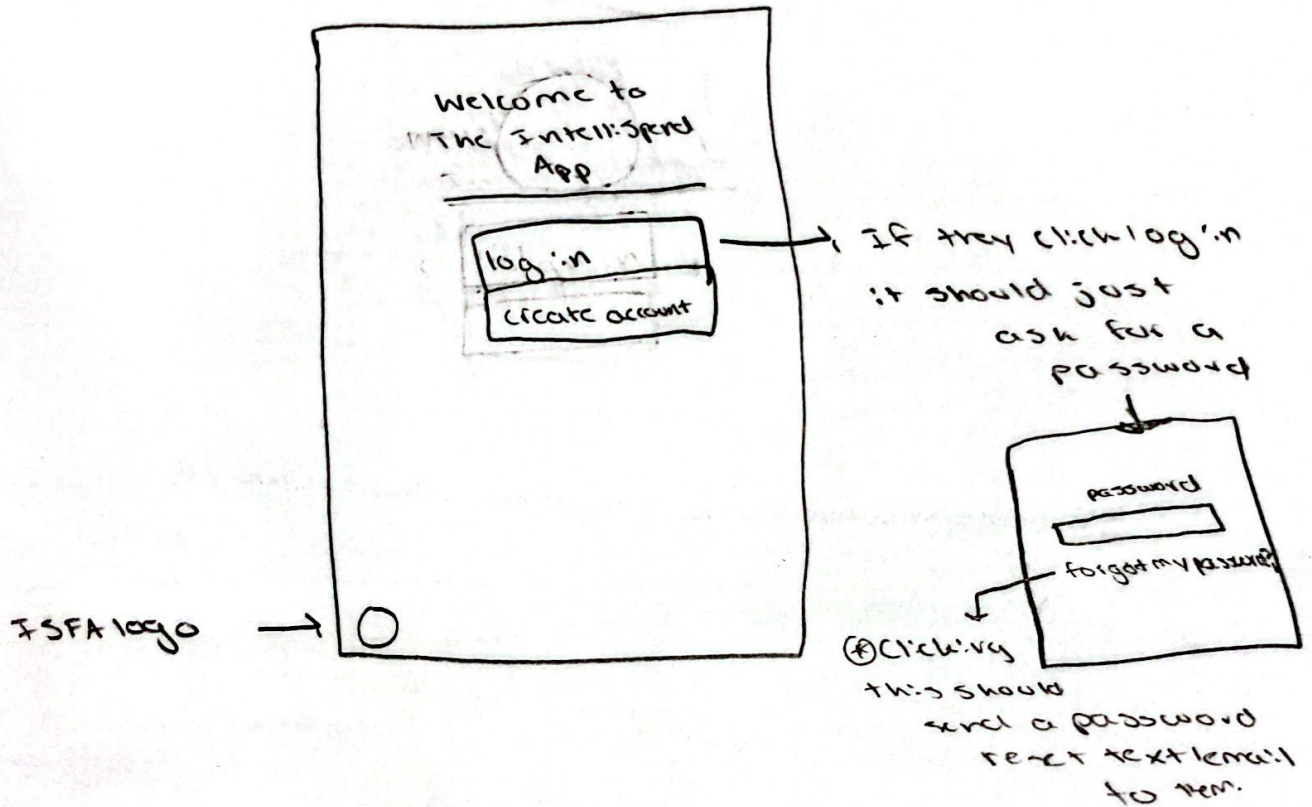 Welcome to
The Intellispend
App
log in
create account
ISFA logo
If they click log in
it should just
ask for a
password
password
forgot my password?
* Clicking
this should
send a password
reset text/email
to them.